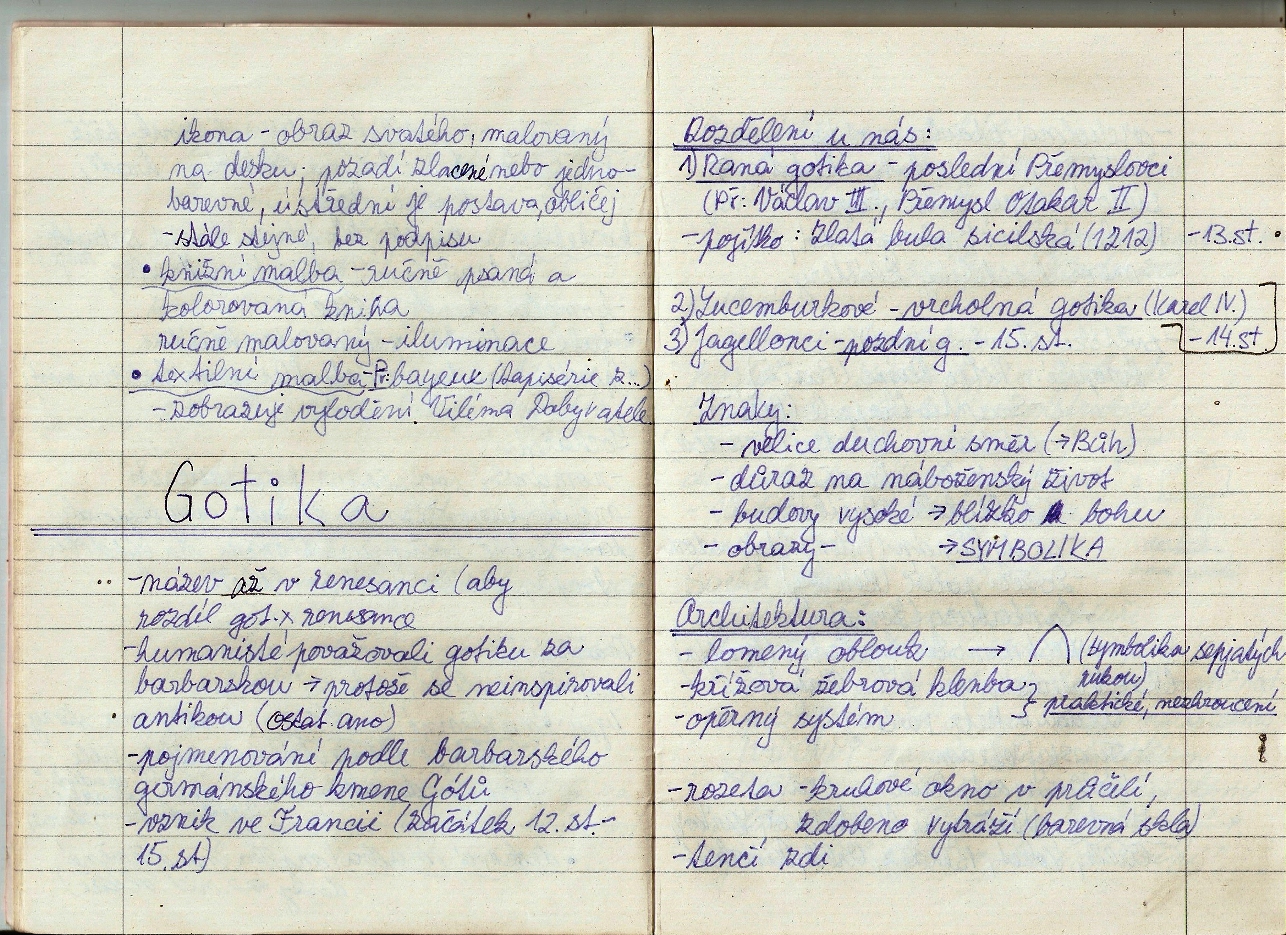 ikona - obraz svatého, malovaný
na desku, pozadí zlacené nebo jedno-
barevné, ústřední je postava, obličej
- stále stejné, bez podpisu
• knižní malba - ručně psaná a
kolorovaná kniha
ručně malovaný - iluminace
• textilní malba - Př. bayeux (tapisérie z...)
- zobrazuje vylodění Viléma Dobyvatele
Gotika
- název až v renesanci (aby
rozdíl got. x renesance
- humanisté považovali gotiku za
barbarskou → protože se neinspirovali
antikou (ostat. ano)
- pojmenování podle barbarského
germánského kmene Gótů
- vznik ve Francii (začátek 12. st. -
15. st)
Rozdělení u nás:
1) Raná gotika - poslední Přemyslovci
(Př: Václav III., Přemysl Otakar II)
- pojítko: Zlatá bula sicilská (1212) - 13. st.
2) Lucemburkové - vrcholná gotika (Karel IV.)
3) Jagellonci - pozdní g. - 15. st. - 14. st
Znaky:
- velice duchovní směr (→ Bůh)
- důraz na náboženský život
- budovy vysoké → blízko bohu
- obrazy - → SYMBOLIKA
Architektura:
- lomený oblouk → (symbolika sepjatých
rukou)
- křížová žebrová klenba
- opěrný systém } praktické, nezhroucení
- rozeta - kruhové okno v průčelí,
zdobeno vytráží (barevná skla)
- tenčí zdi